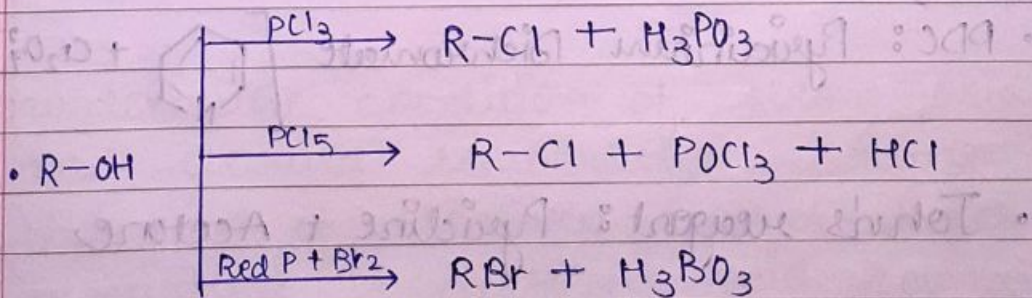 PCl3 → R-Cl + H3PO3
• R-OH PCl5 → R-Cl + POCl3 + HCl
Red P + Br2 → RBr + H3BO3